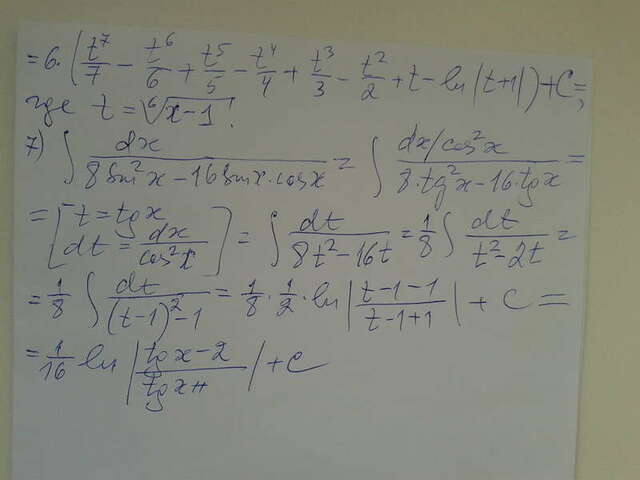 = 6·(t⁷/7 − t⁶/6 + t⁵/5 − t⁴/4 + t³/3 − t²/2 + t − ln|t+1|) + C =,
где t = ⁶√(x−1) .
7) ∫ dx/(8 sin²x − 16 sinx·cosx) = ∫ (dx/cos²x)/(8·tg²x − 16·tgx) =
= [t = tgx dt = dx/cos²x] = ∫ dt/(8t² − 16t) = 1/8 ∫ dt/(t² − 2t) =
= 1/8 ∫ dt/((t−1)² − 1) = 1/8 · 1/2 · ln|(t−1−1)/(t−1+1)| + C =
= 1/16 ln|(tgx−2)/(tgx)| + C